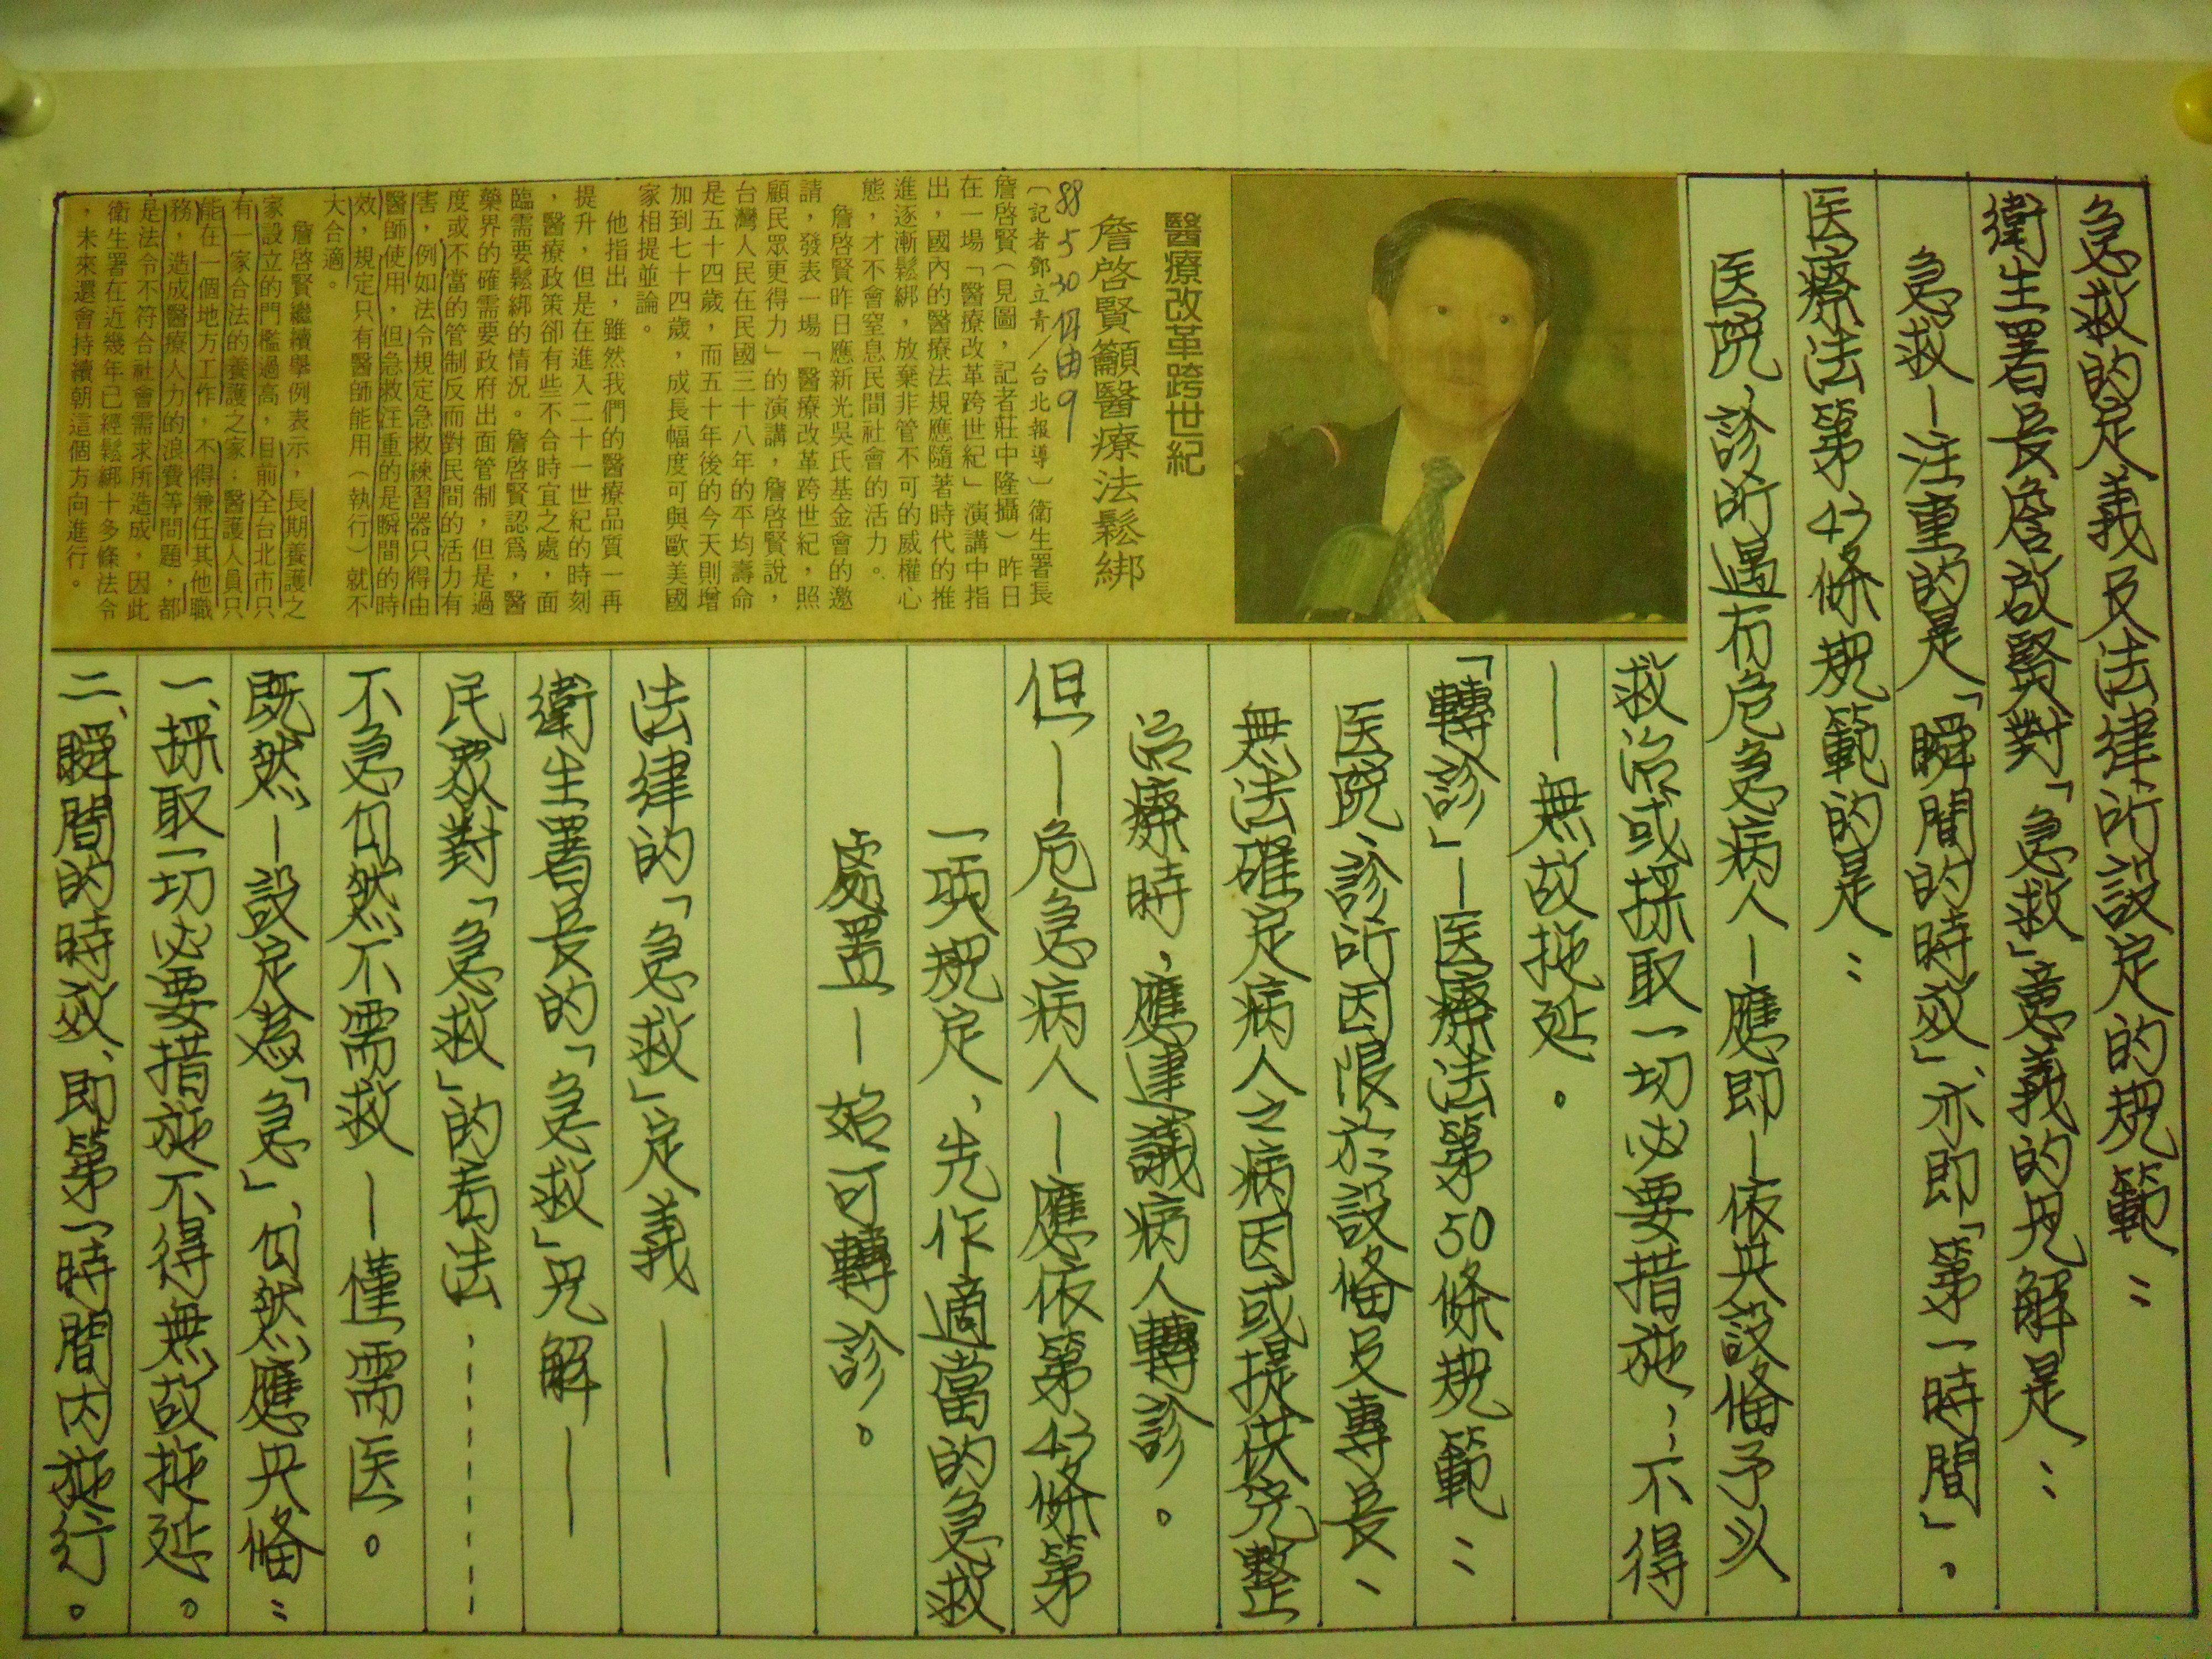 急救的定義及法律所設定的規範：
衛生署長詹啟賢對「急救」意義的見解是：
急救－注重的是「瞬間的時效」亦即「第一時間」。
医療法第43條規範的是：
医院、診所遇有危急病人－應即－依其設俻予以
救治或採取一切必要措施，；不得
－－無故拖延。
「轉診」－医療法第50條規範：
医院、診所因限於設俻及專長、
無法確定病人之病因或提供完整
治療時，應建議病人轉診。
但－危急病人－應依第43條第
一項規定、先作適當的急救
處置－始可轉診。
法律的「急救」定義——
衛生署長的「急救」見解——
民眾對「急救」的看法………
不急自然不需救－僅需医。
既然－設定為「急」、自然應具俻：
一、採取一切必要措施不得無故拖延。
二、瞬間的時效、即第一時間內施行。
醫療改革跨世紀
詹啓賢籲醫療法鬆綁
88 5 30 自由 9
〔記者鄧立青／台北報導〕衛生署長
詹啓賢（見圖，記者莊中隆攝）昨日
在一場「醫療改革跨世紀」演講中指
出，國內的醫療法規應隨著時代的推
進逐漸鬆綁，放棄非管不可的威權心
態，才不會窒息民間社會的活力。
詹啓賢昨日應新光吳氏基金會的邀
請，發表一場「醫療改革跨世紀，照
顧民眾更得力」的演講，詹啓賢說，
台灣人民在民國三十八年的平均壽命
是五十四歲，而五十年後的今天則增
加到七十四歲，成長幅度可與歐美國
家相提並論。
他指出，雖然我們的醫療品質一再
提升，但是在進入二十一世紀的時刻
，醫療政策卻有些不合時宜之處，面
臨需要鬆綁的情況。詹啓賢認爲，醫
藥界的確需要政府出面管制，但是過
度或不當的管制反而對民間的活力有
害，例如法令規定急救練習器只得由
醫師使用，但急救注重的是瞬間的時
效，規定只有醫師能用（執行）就不
大合適。
詹啓賢繼續舉例表示，長期養護之
家設立的門檻過高，目前全台北市只
有一家合法的養護之家；醫護人員只
能在一個地方工作，不得兼任其他職
務，造成醫療人力的浪費等問題，都
是法令不符合社會需求所造成，因此
衛生署在近幾年已經鬆綁十多條法令
，未來還會持續朝這個方向進行。